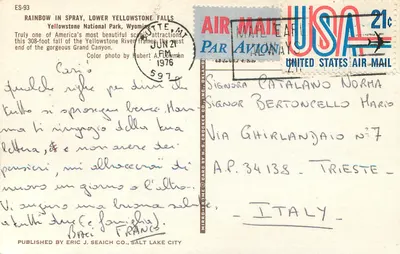 ES-93
RAINBOW IN SPRAY, LOWER YELLOWSTONE FALLS
Yellowstone National Park, Wyoming
Truly one of America's most beautiful scenic attractions,
this 308-foot fall of the Yellowstone River
end of the gorgeous Grand Canyon.
Color photo by Robert A.
BUTTE, MT
JUN 21
1976
597
AIR MAIL
PAR AVION
USA 21¢
UNITED STATES AIR MAIL
Qualche righe per dire che
tutto si prosegue bene. Mamma
ti ringrazio della tua
lettera, e non avere dei
pensieri, mi allaccerai di
nuovo un giorno o l'altro.
Vi auguro una buona salute
a tutti due (e famiglia).
Baci FRANCO
SIGNORA CATALANO NORMA
SIGNOR BERTONCELLO MARIO
VIA GHIRLANDAIO n°7
A.P. 34138 - TRIESTE -
- ITALY -
PUBLISHED BY ERIC J. SEAICH CO., SALT LAKE CITY